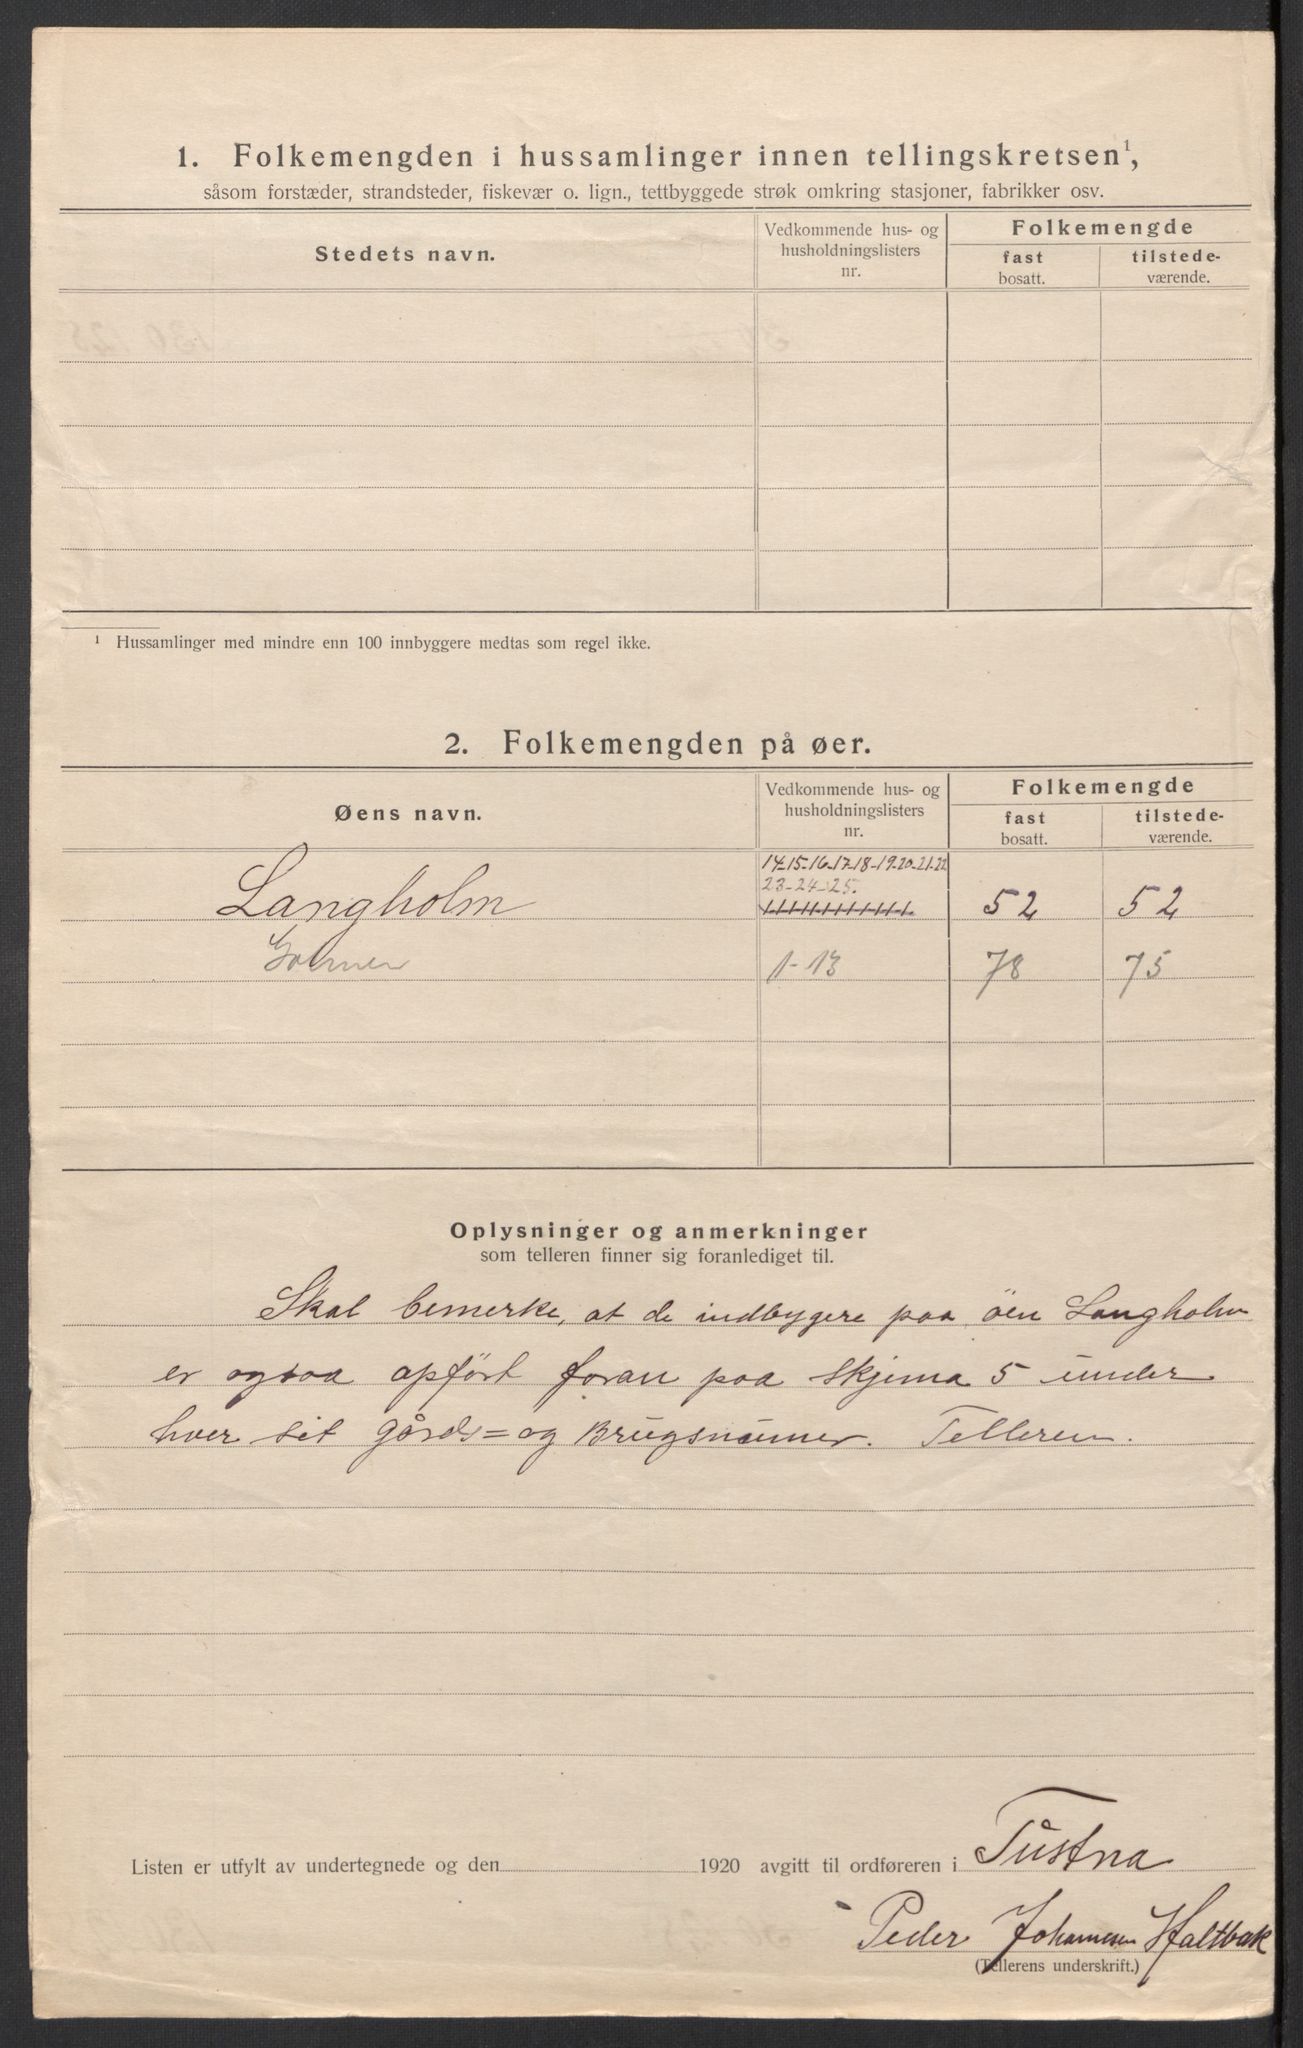 1. Folkemengden i hussamlinger innen tellingskretsen¹,
såsom forstæder, strandsteder, fiskevær o. lign., tettbyggede strøk omkring stasjoner, fabrikker osv.
Stedets navn.
Vedkommende hus- og
husholdningslisters
nr.
Folkemengde
fast
bosatt.
tilstede-
værende.
¹ Hussamlinger med mindre enn 100 innbyggere medtas som regel ikke.
2. Folkemengden på øer.
Øens navn.
Vedkommende hus- og
husholdningslisters
nr.
Folkemengde
fast
bosatt.
tilstede-
værende.
14-15-16-17-18-19-20-21-22
23-24-25.
Langholm 52 52
1-13 78 75
Oplysninger og anmerkninger
som telleren finner sig foranlediget til.
Skal bemerke, at de indbygere paa öen Langholm
er ogsaa opfört foran paa Skjema 5 under
hver sit gårds= og Brugsnumer. Telleren.
Listen er utfylt av undertegnede og den 1920 avgitt til ordføreren i Tustna
Peder Johannesen Haltbak
(Tellerens underskrift.)